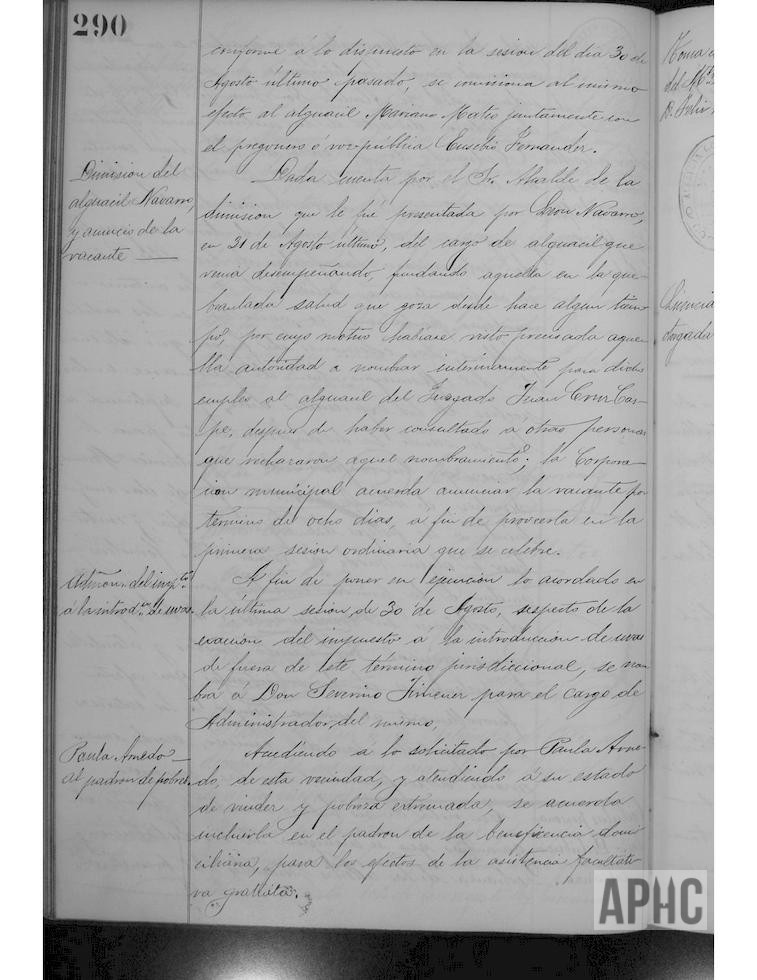 290
conforme á lo dispuesto en la sesion del dia 30 de
Agosto último pasado, se comisiona al mismo
efecto al alguacil Mariano Mateo juntamente con
el pregonero ó voz pública Eusebio Fernandez.
Dimision del
alguacil Navarro,
y anuncio de la
vacante —
Dada cuenta por el Sr. Alcalde de la
dimision que le fué presentada por Leon Navarro,
en 21 de Agosto último, del cargo de alguacil que
venia desempeñando, fundando aquella en la que-
brantada salud que goza desde hace algun tiem-
po, por cuyo motivo habiase visto precisada aque-
lla autoridad a nombrar interinamente para dicho
empleo al alguacil del Juzgado Juan Cruz Cas-
pe, despues de haber consultado a otras personas
que rechazaron aquel nombramiento; la Corpora-
cion municipal acuerda anunciar la vacante por
término de ocho dias, á fin de proveerla en la
primera sesion ordinaria que se celebre.
del impto.
á la introdon. de uvas.
A fin de poner en ejecucion lo acordado en
la última sesion, de 30 de Agosto, respecto de la
exaccion del impuesto á la introduccion de uvas
de fuera de este término jurisdiccional, se nom
bra á Don Severino Jimenez para el cargo de
Administrador del mismo.
Paula Arnedo —
al padron de pobres.
Accediendo a lo solicitado por Paula Arne-
do, de esta vecindad, y atendiendo á su estado
de viudez y pobreza extremada, se acuerda
incluirla en el padron de la beneficencia domi
ciliaria, para los efectos de la asistencia facultati
va gratuita.
Toma
del
D. Felix
Licencia
otorgada
APHC